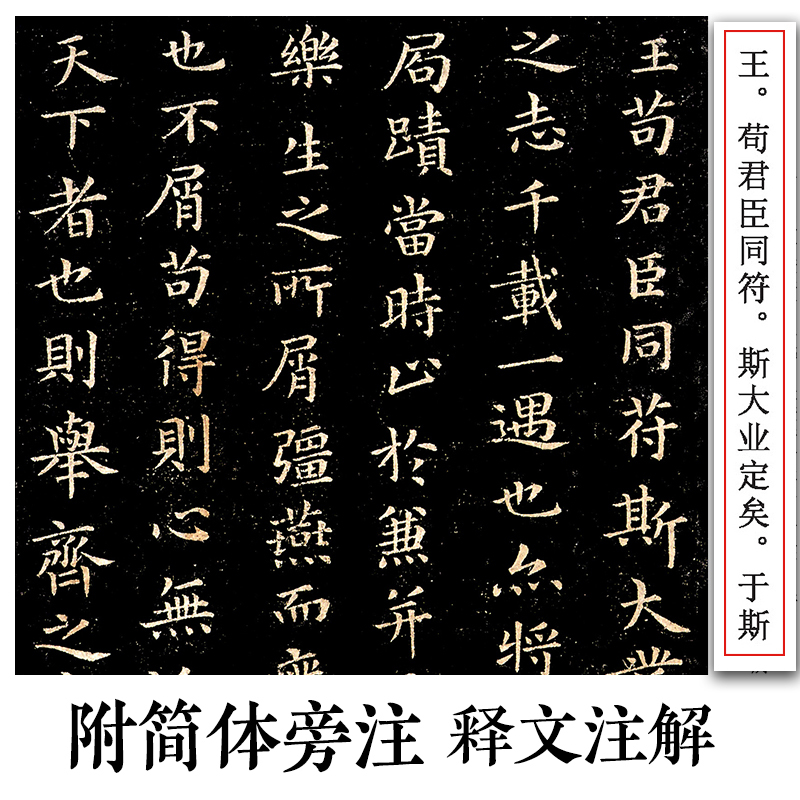 王苟君臣同苻斯大業
之志千載一遇也亦將
局蹟當時止於兼并
樂生之所屑彊燕而齊
也不屑苟得則心無
天下者也則舉齊之
王。苟君臣同符。斯大业定矣。于斯
附简体旁注 释文注解